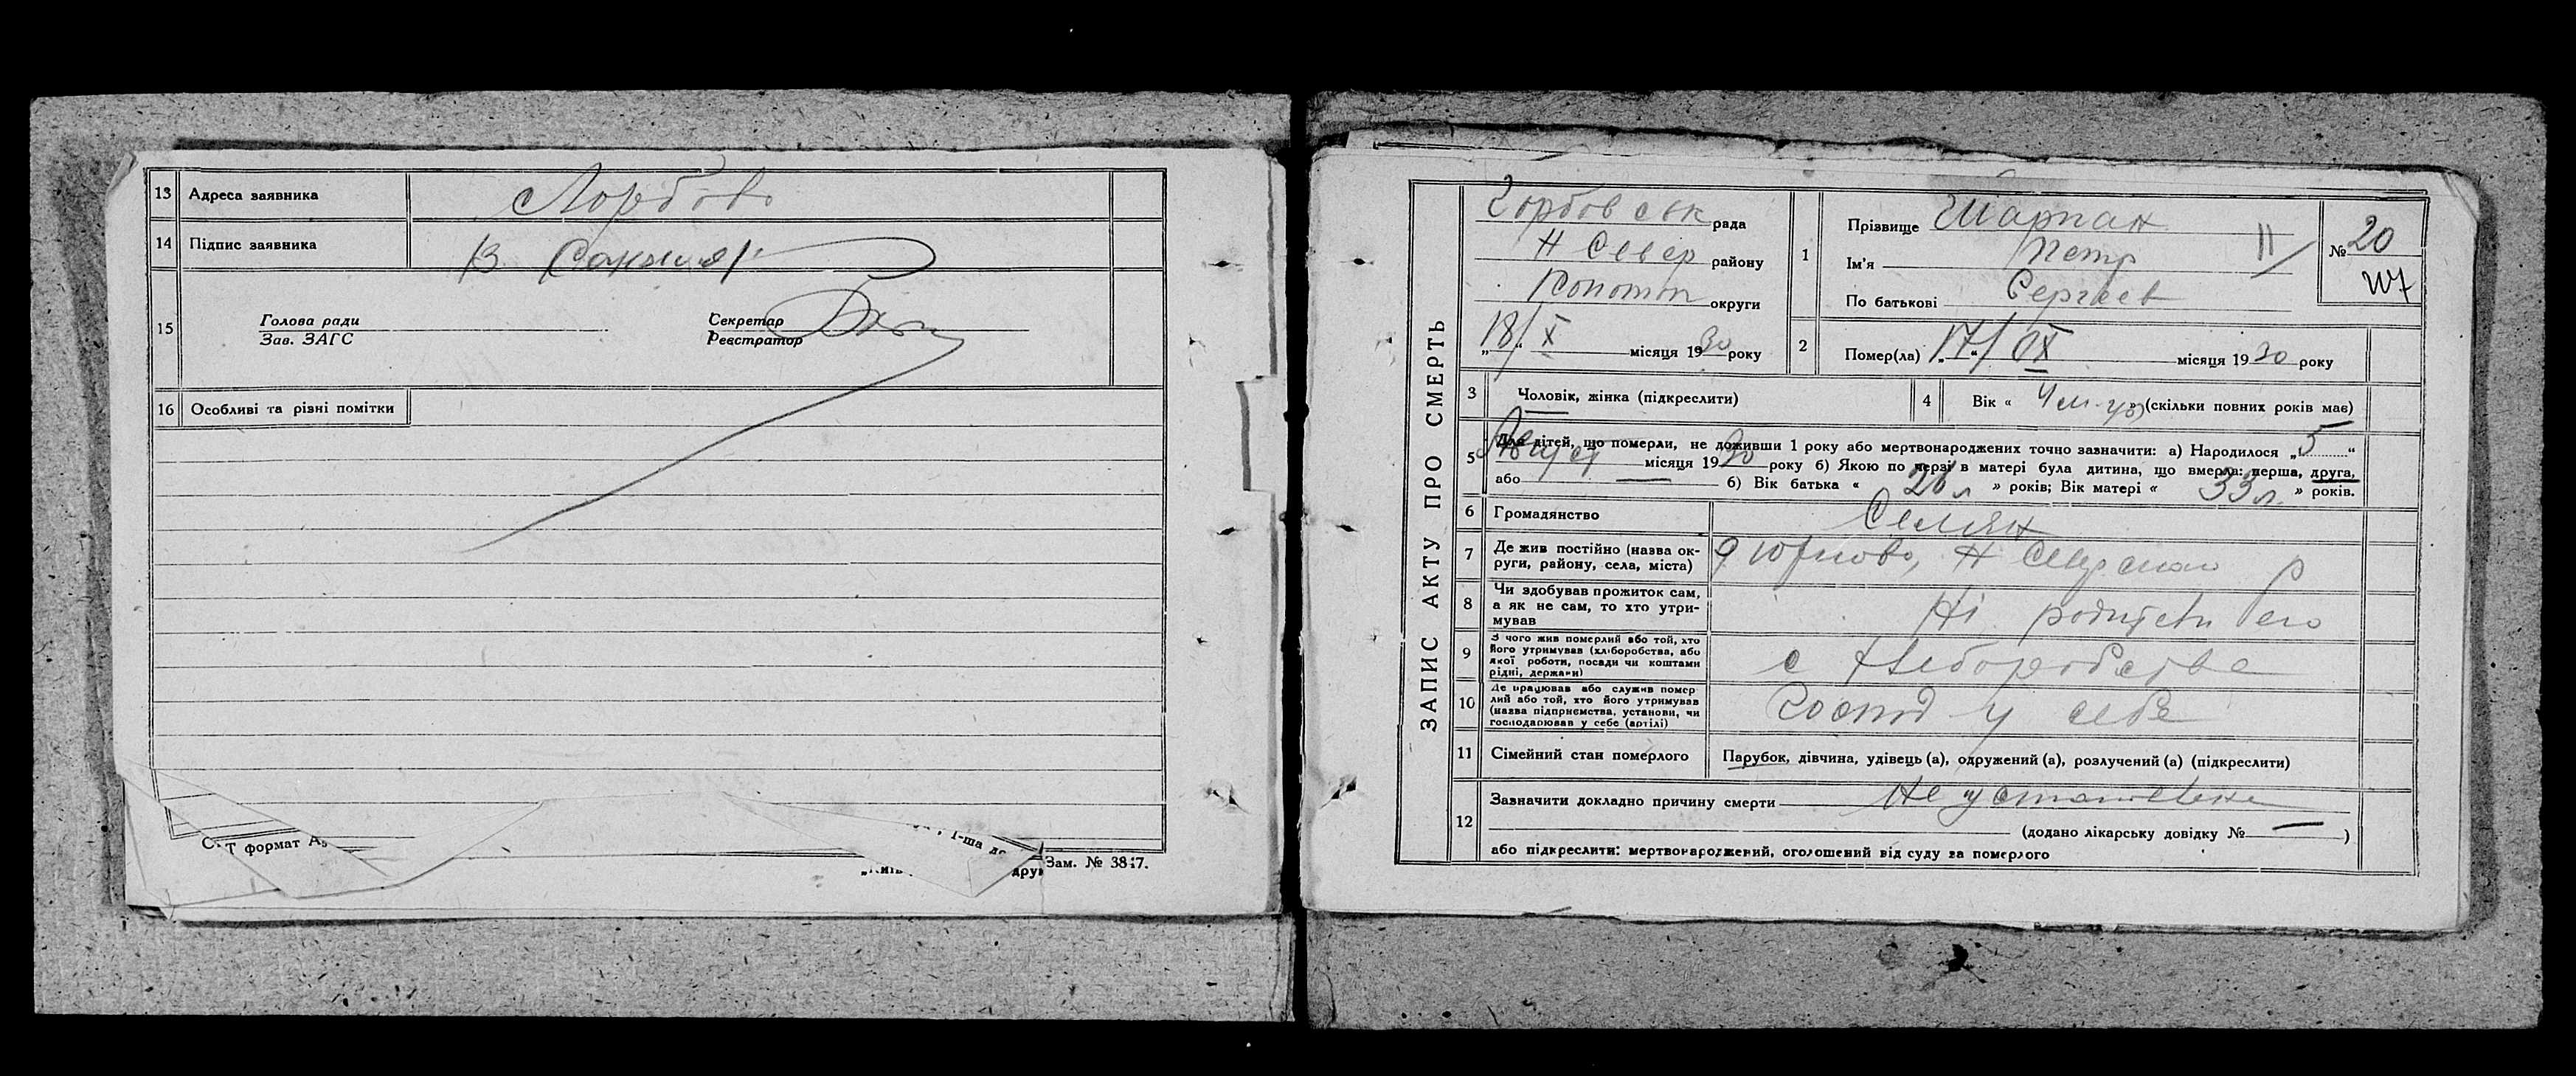 13 Адреса заявника
14 Підпис заявника
В
15 Голова ради Секретар
Зав. ЗАГС Реєстратор
16 Особливі та різні помітки
формат 1-ша
Зам. № 3847.
ЗАПИС АКТУ ПРО СМЕРТЬ
Горбовськ рада
Н Север району
Конотоп округи
18/X місяця 1930 року
1 Прізвище Шарпан
Ім'я Петр
По батькові Сергеев
11
№ 20
2 Помер(ла) „17/ IX місяця 1930 року
3 Чоловік, жінка (підкреслити)
4 Вік « 4 м » (скільки повних років має)
5 Для дітей, що померли, не доживши 1 року або мертвонароджених точно зазначити: а) Народилося „5“
Август місяця 1930 року б) Якою по черзі в матері була дитина, що вмерла: перша, друга,
або — б) Вік батька « 26 л » років; Вік матері « 33 л. » років.
6 Громадянство Селян
7 Де жив постійно (назва ок-
руги, району, села, міста)
Н
8 Чи здобував прожиток сам,
а як не сам, то хто утри-
мував
Ні родители его
9 З чого жив померлий або той, хто
його утримував (хліборобства, або
якої роботи, посади чи коштами
рідні, держави)
с Хлеборобства
10 Де працював або служив помер
лий або той, хто його утримував
(назва підприємства, установи, чи
господарював у себе (артілі)
Госпд у себе
11 Сімейний стан померлого Парубок, дівчина, удівець (а), одружений (а), розлучений (а) (підкреслити)
12 Зазначити докладно причину смерти Не установлена
(додано лікарську довідку № — )
або підкреслити: мертвонароджений, оголошений від суду за померлого